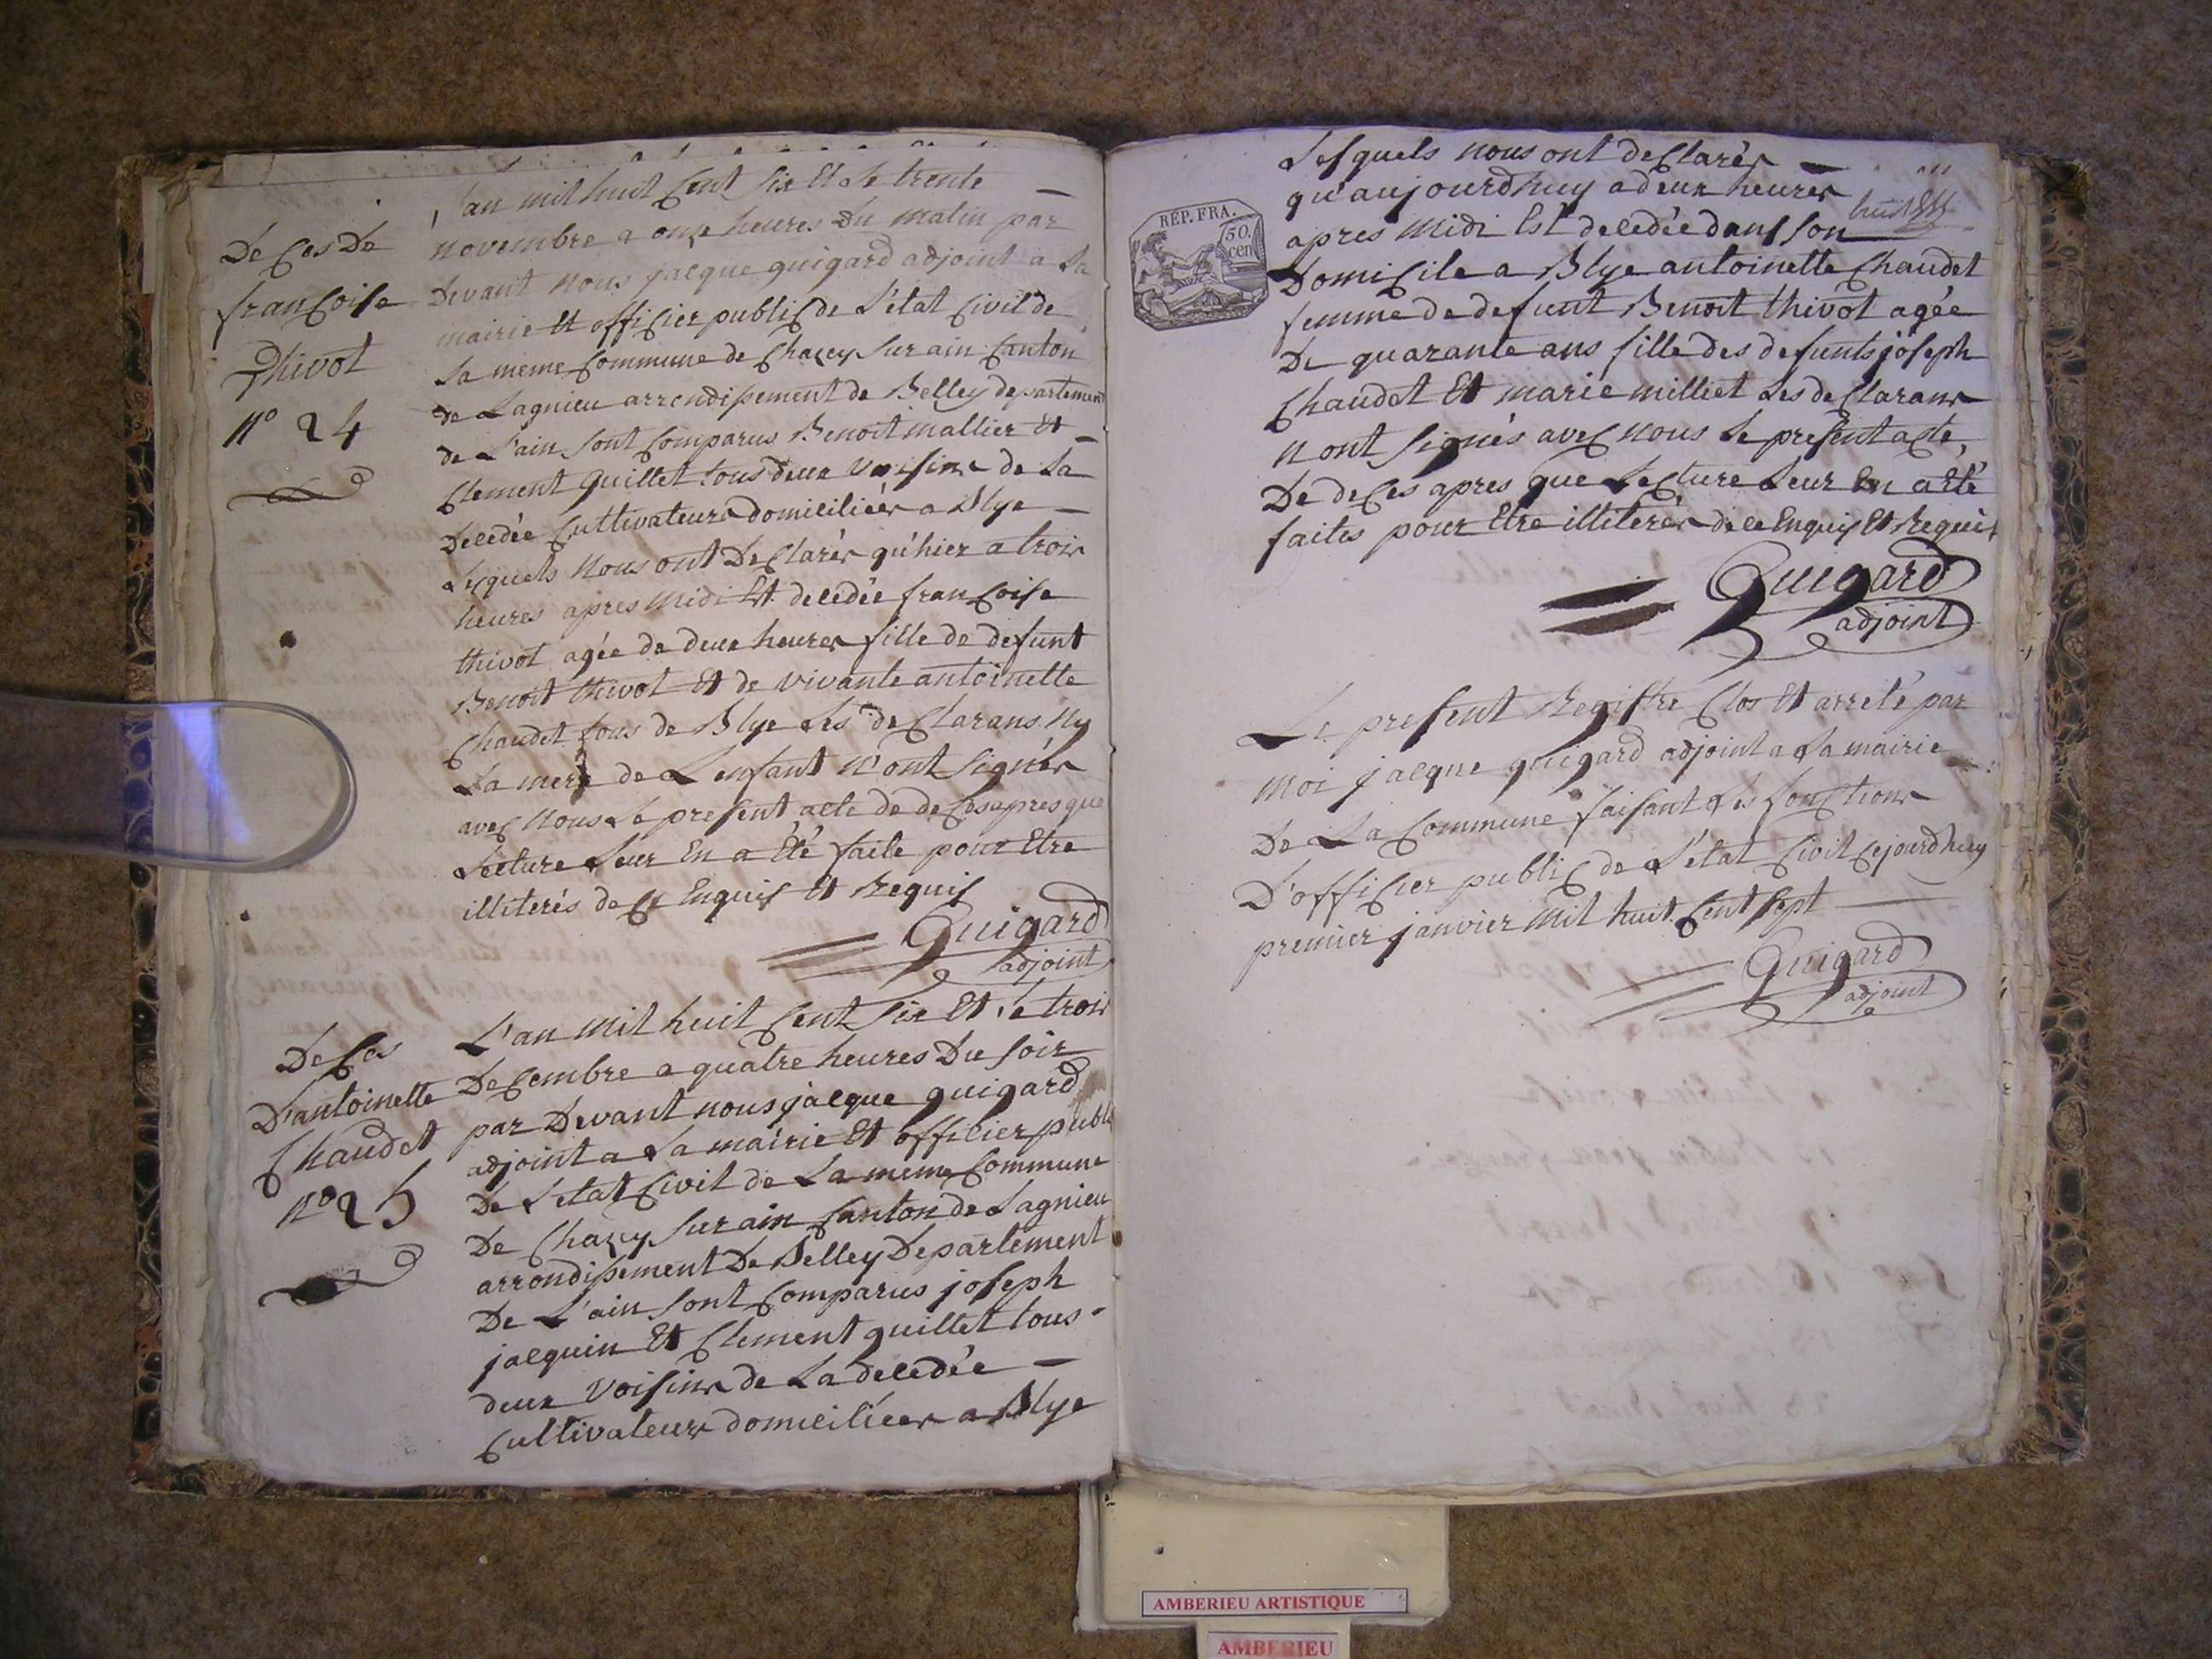 Deces De
françoise
Thivot
n° 24
L'an mil huit cent six et le trente
novembre a onze heures Du matin par
Devant nous jacque guigard adjoint a La
mairie et officier public de L'état civil de
La meme commune de chazey sur ain canton
de Lagnieu arrondissement de Belley departement
de L'ain sont comparus Benoit mallier et
clement guillet tous deux voisins de La
decedée cultivateurs domiciliées a Blye
Lesquels nous ont declarés qu'hier a trois
heures apres midi Est decedée francoise
thivot agée de deux heures fille de defunt
Benoit thivot et de vivante antoinette
chaudet tous de Blye Les declarans ny
La mere de L'enfant n'ont signés
avec nous Le present acte de deces apres que
Lecture Leur En a été faite pour Etre
illiterés de ce Enquis et Requis
Guigard
adjoint
Deces
D'antoinette
Chaudet
n° 25
L'an mil huit cent six Et le trois
Decembre a quatre heures Du soir
par Devant nous jacque guigard
adjoint a La mairie Et officier public
De L'etat civil de La meme commune
De Chazey sur ain canton de Lagnieu
arrondissement De Belley Departement
De L'ain sont comparus joseph
jacquin Et clement guillet tous
deux voisins de La decedée
cultivateurs domiciliées a Blye
RÉP. FRA.
50.
cen
Lesquels nous ont declarés
qu'aujourdhuy a deux heures
apres midi Est decedée dans son
huit
Domicile a Blye antoinette chaudet
femme de defunt Benoit thivot agée
De quarante ans fille des defunts joseph
Chaudet Et marie milliet Les declarans
n'ont signés avec nous Le present acte,
De deces apres que Lecture Leur En a été
faites pour Etre illiterés de ce Enquis Et Requis
Guigard
adjoint
Le present Registre clos Et arreté par
moi jacque guigard adjoint a La mairie
De La commune faisant Les fonctions
D'officier public de L'état civil cejourdhuy
premier janvier mil huit cent sept
Guigard
adjoint
AMBERIEU ARTISTIQUE
AMBERIEU